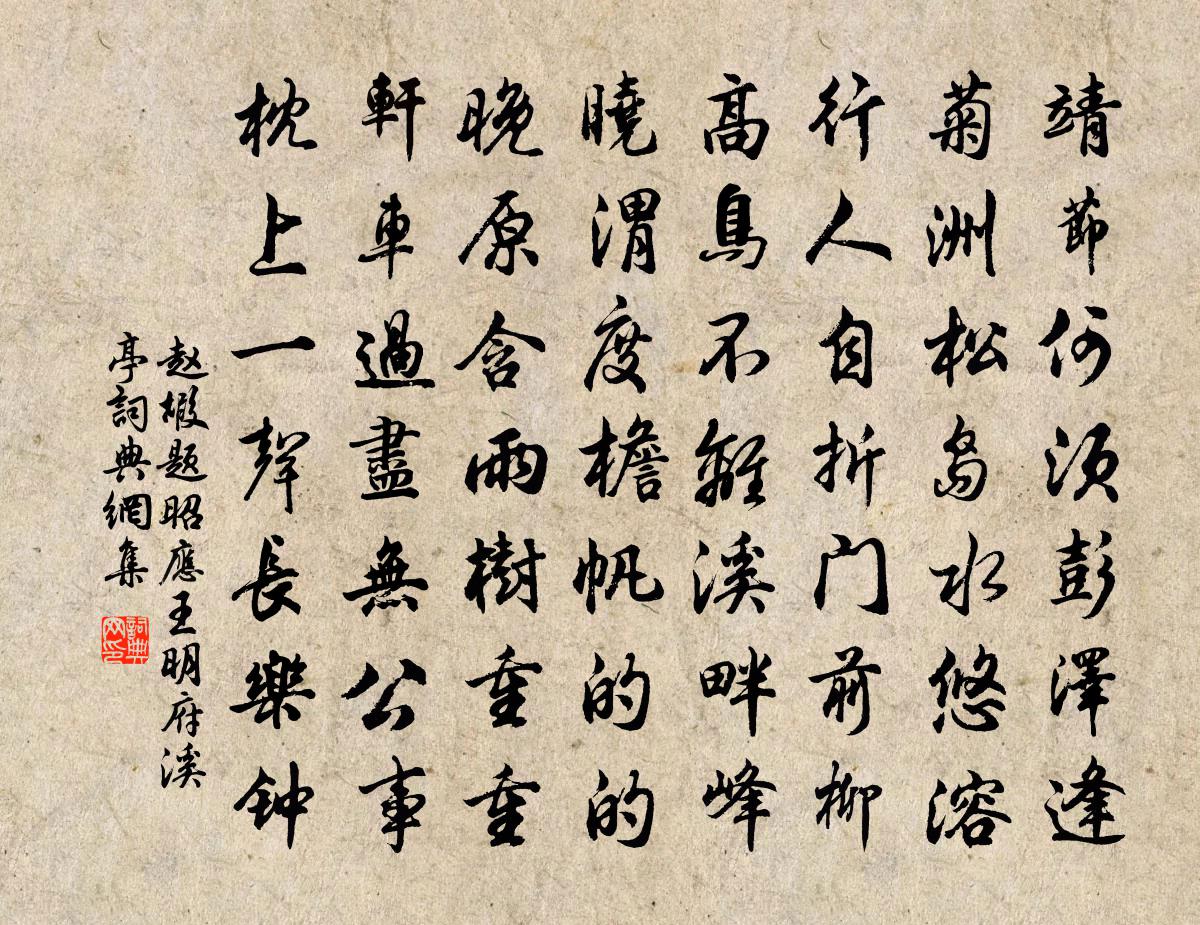 靖節何須彭澤逢
菊洲松島水悠溶
行人自折门前柳
高鳥不離溪畔峰
曉渭度檐帆的的
晚原含雨樹重重
軒車過盡無公事
枕上一聲長樂钟
赵嘏题昭應王明府溪
亭詞典網集
詞典
网印